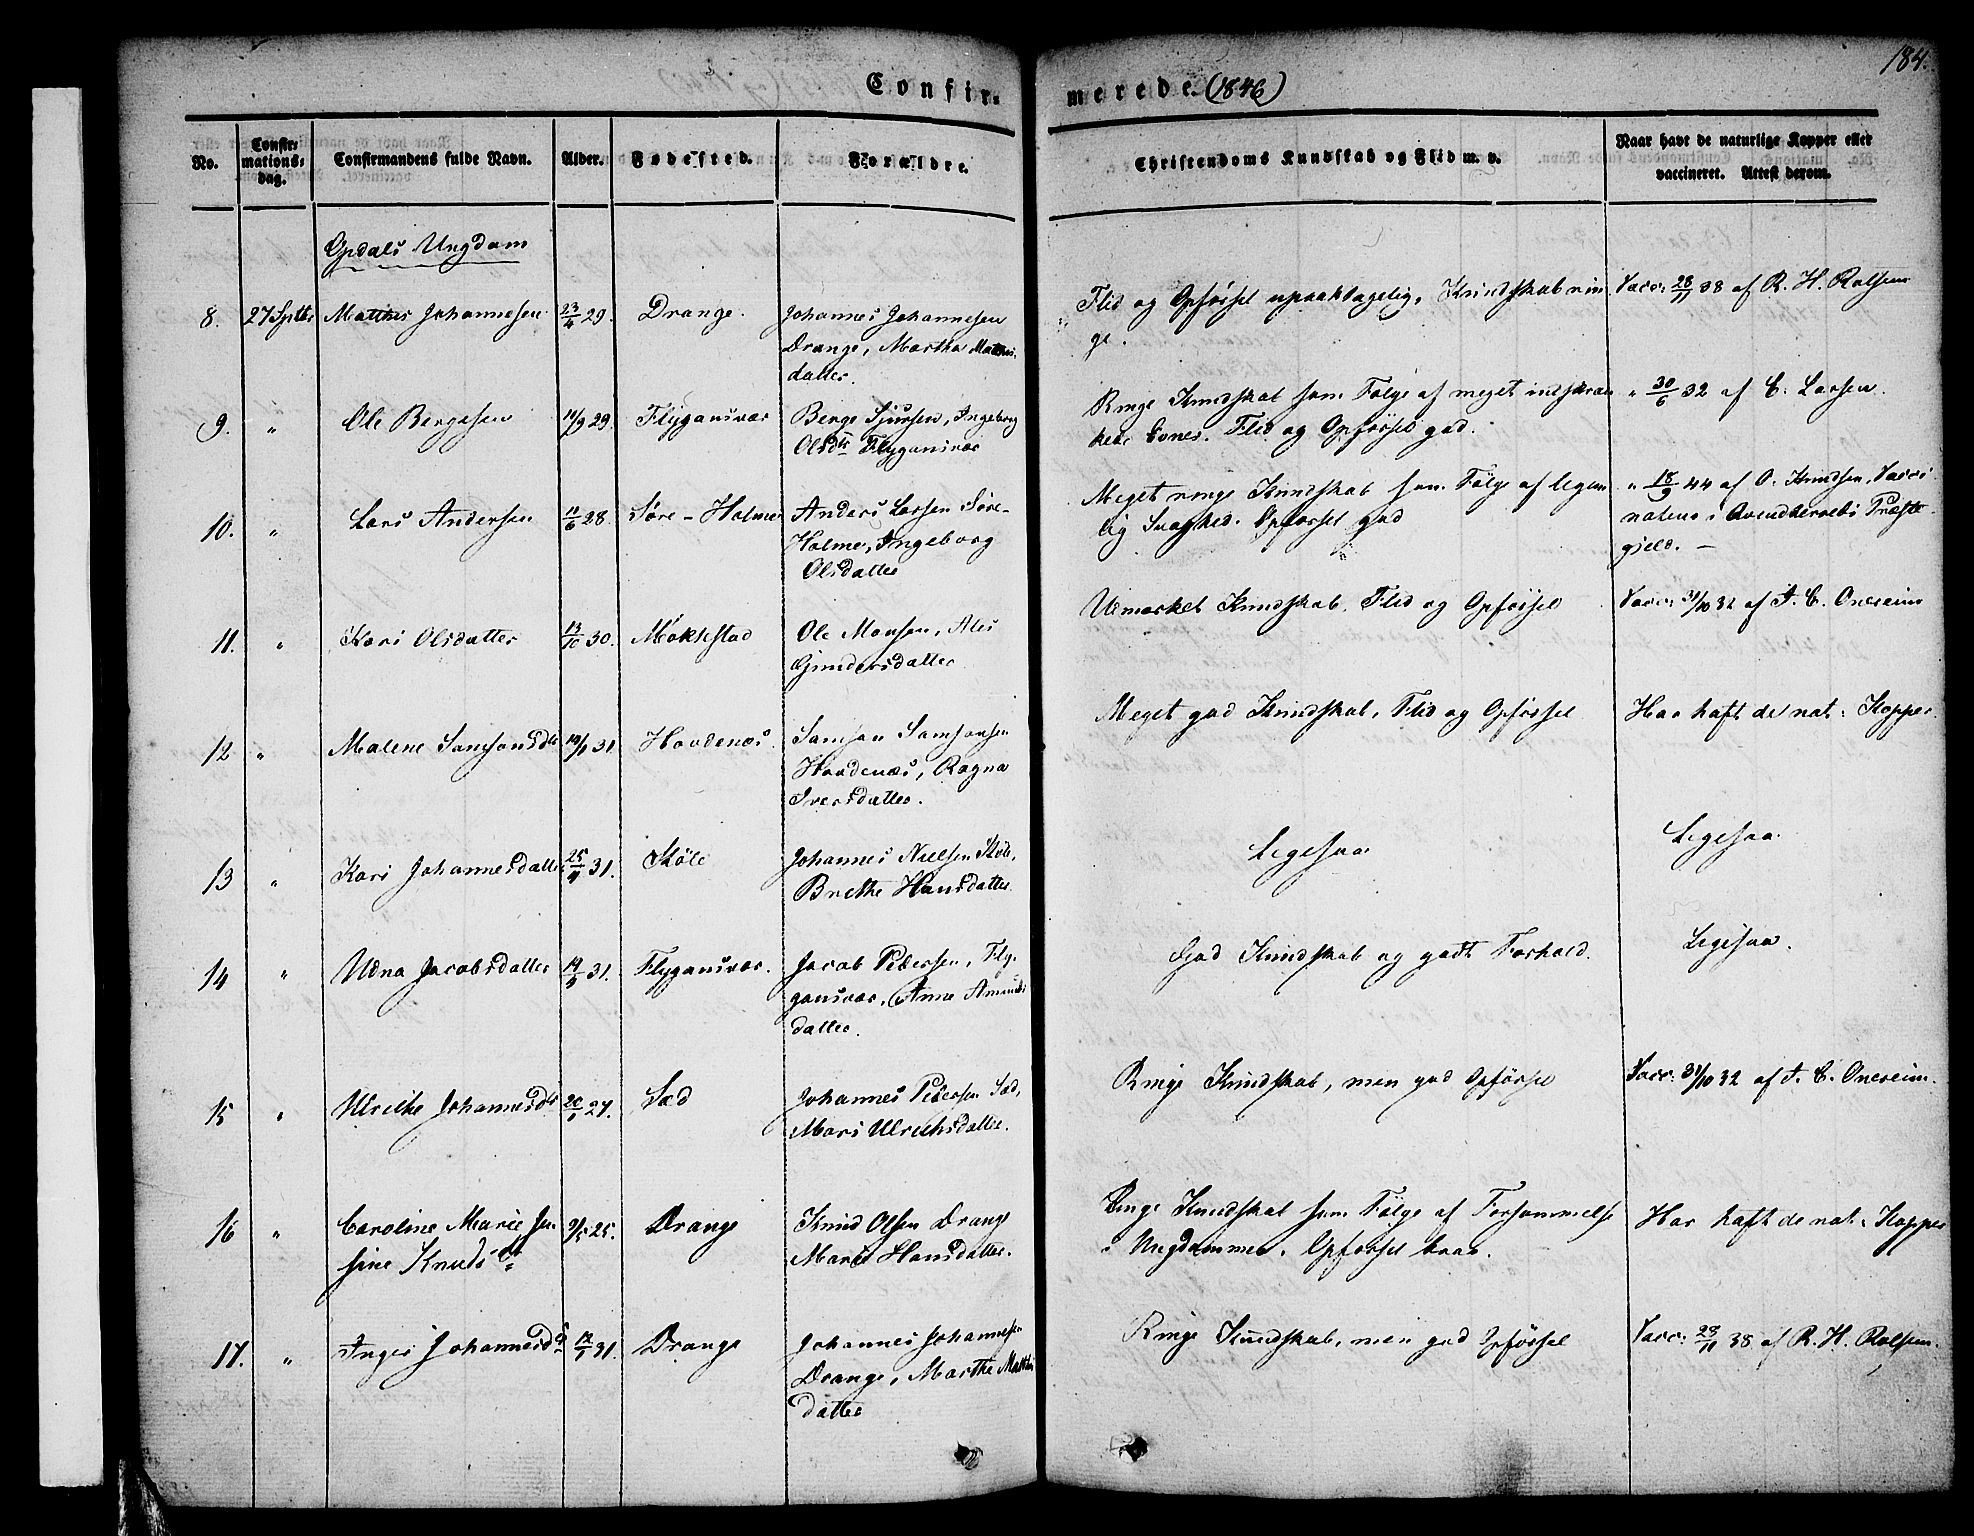 184.
Confir-merede. (1846)
No. Confirmations-dag. Confirmandens fulde Navn. Alder. Fødested. Forældre. Christendoms Kundskab og Flid m. v. Naar havt de naturlige Kopper eller vaccineret. Attest derom.
Opdals Ungdom
8. 27 Septbr Matthis Johannesen 23/4 29. Drange. Johannes Johannesen
Drange, Martha Matthis-
datter.
Flid og Opførsel upaaklagelig, Kundskab rin-
ge.
Vacc: 28/11 38 af R. H. Rolfsen
9. " Ole Bergesen 11/9 29. Flygansvær Berge Sjursen, Ingeborg
Olsdtr Flygansvær
Ringe Kundskab som Følge af meget indskræn-
kede Evner. Flid og Opførsel god.
" 30/6 32 af C. Larsen.
10. " Lars Andersen 11/6 28. Søre-Holme Anders Larsen Søre-
Holme, Ingeborg
Olsdatter
Meget ringe Kundskab som Følge af legem-
lig Svaghed. Opførsel god
" 18/9 44 af O. Knudsen, Vacci-
nateur i Præste-
gjeld. —
11. " Kari Olsdatter 13/10 30. Møklestad Ole Monsen, Ales
Gundersdatter
Udmærket Kundskab, Flid og Opførsel
Vacc: 31/10 32 af A. C. Onereim
12 " Malene Samsonsdtr 10/1 31 Hovdenæs. Samson Samsonsen
Hovdenæs, Ragna
Iversdatter.
Meget god Kundskab, Flid og Opførsel
Har haft de nat: Kopper.
13 " Kari Johannesdatter 25/4 31. Støle Johannes Nielsen Støle,
Brethe Hansdatter
Ligesaa
Ligesaa
14 " Udna Jacobsdatter 14/4 31. Flygansvær. Jacob Pedersen, Fly-
gansvær, Anne Amunds-
datter.
God Kundskab og godt Forhold.
Ligesaa.
15 " Ulrikke Johannesdtr 20/1 27. Sæd Johannes Pedersen Sæd,
Mari Ulrichsdatter.
Ringe Kundskab, men god Opførsel
Vacc: 31/10 32 af A. C. Onereim.
16 " Caroline Marie Jen-
sine Knudsdtr 9/5 25. Drange Knud Olsen Drange
Marie Hansdatter.
Ringe Kundskab som Følge af Forsømmelse
i Ungdommen. Opførsel brav.
Har haft de nat: Kopper
17. " Inger Johannesdtr 12/1 31. Drange Johannes Johannesen
Drange, Marthe Matthis
datter
Ringe Kundskab, men god Opførsel
Vacc: 28/11 38 af R. H. Rolfsen.